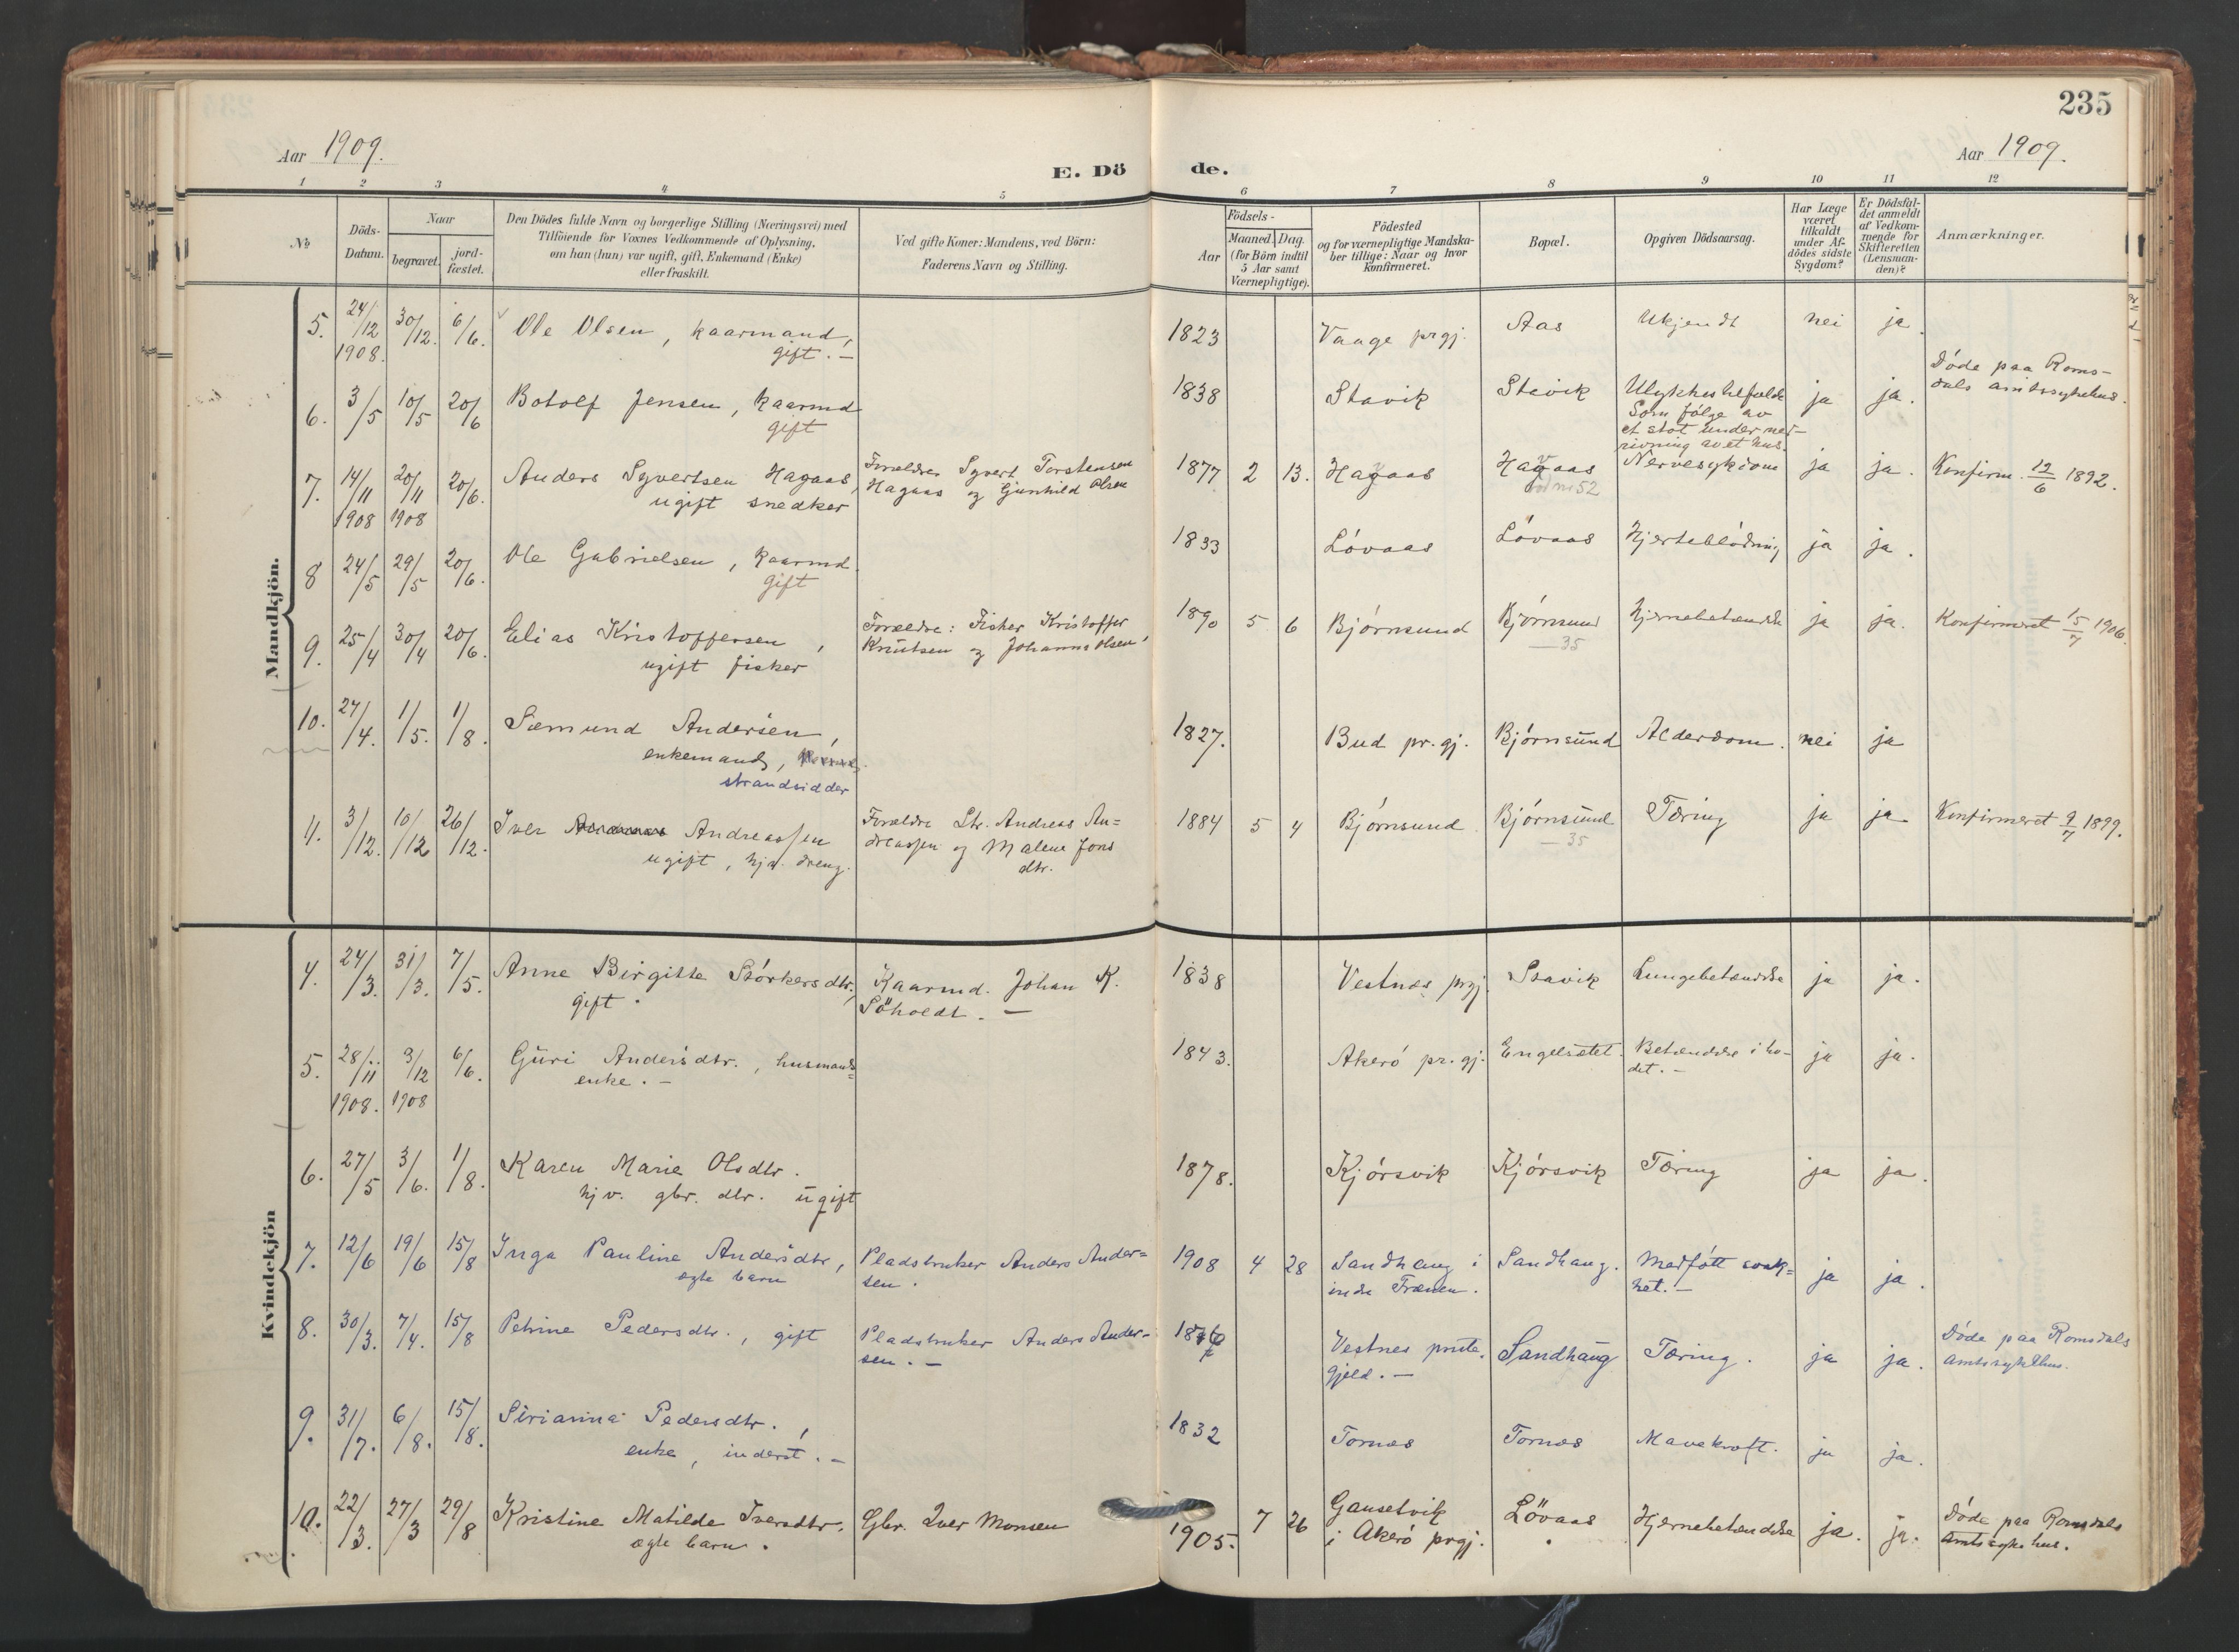 235
Aar 1909.
E. Dö
de.
Aar 1909.
1 2 3 4 5 6 7 8 9 10 11 12
№
Döds-
Datum.
Naar
begravet.
jord-
fæstet.
Den Dödes fulde Navn og borgerlige Stilling (Næringsvei) med
Tilföiende for Voxnes Vedkommende af Oplysning,
om han (hun) var ugift, gift, Enkemand (Enke)
eller fraskilt.
Ved gifte Koner: Mandens, ved Börn:
Faderens Navn og Stilling.
Födsels-
Aar
Maaned. Dag.
(for Börn indtil
5 Aar samt
Værnepligtige).
Födested
og for værnepligtige Mandska-
ber tillige: Naar og hvor
konfirmeret.
Bopæl.
Opgiven Dödsaarsag.
Har Læge
været
tilkaldt
under Af-
dödes sidste
Sygdom?
Er Dödsfal-
det anmeldt
af Vedkom-
mende for
Skifteretten
(Lensman-
den)?
Anmærkninger.
Mandkjön.
5. 24/12 1908. 30/12. 6/6. Ole Olsen, kaarmand, 1823 Vaage prgj. Aas Ukjendt nei ja.
gift. –
6. 3/5 10/5 20/6 Botolf Jensen, kaarmd 1838 Stavik Stavik Ulykkestilfælde ja ja. Døde paa Roms-
gift Som følge av dals amtssykehus.
et støt under ned-
rivning av et hus.
7. 14/11 1908 20/11 1908 20/6. Anders Syvertsen Hagaas, Forældre Syvert Torstensen 1877 2 13. Hagaas Hagaas Nervesykdom ja ja. Konfirm. 12/6 1892.
ugift snedker Hagaas og Gunhild Olsen 52
8 24/5 29/5 20/6. Ole Gabrielsen, kaarmd. 1833 Løvaas Løvaas Hjerteblødning ja ja.
gift
9. 25/4 30/4 20/6. Elias Kristoffersen, Forældre: Fisker Kristoffer 1890 5 6 Bjørnsund Bjørnsund Hjernebetændelse ja ja. Konfirmeret 15/7 1906.
ugift fisker Knutsen og Johanna Olsen 35
10. 27/4. 1/5. 1/8. Sæmund Andersen, 1827. Bud pr. gj. Bjørnsund Alderdom. nei ja
enkemand,
strandsidder
11. 3/12. 10/12 26/12. Iver Andreassen Forældre Str. Andreas An= 1884 5 4 Bjørnsund Bjørnsund Tæring ja ja Konfirmeret 9/7 1899.
ugift, hja. dreng. dreassen og Malene Jons 35
dtr.
Kvindekjön
4. 24/3. 31/3. 7/5. Anne Birgitte Størkersdtr., Kaarmd. Johan K. 1838 Vestnæs prgj. Stavik Lungebetændelse ja ja.
gift. Söholdt. –
5. 28/11 1908. 3/12 1908 6/6. Guri Andersdtr., husmands= 1843. Akerø pr. gj. Engelsetet. Betændelse i ho- ja ja.
enke. – det. –
6. 27/5 3/6. 1/8. Karen Marie Olsdtr. 1878. Kjørsvik Kjørsvik Tæring ja ja.
hjv. gbr. dtr. ugift
7. 12/6 19/6 15/8 Inga Pauline Andersdtr, Pladsbruker Anders Ander= 1908 4 28 Sandhaug i Sandhaug. Medføtt svak= ja ja.
ægte barn sen. indre Frænen. het. –
8. 30/3. 7/4. 15/8 Petrine Pedersdtr., gift Pladsbruker Anders Ander- Vestnes preste- Sandhaug Tæring. ja ja. Døde paa Romsdals
sen. – gjeld. – amtssykehus.
9. 31/7. 6/8. 15/8. Sirianna Pedersdtr., 1832 Tornes Tornes Mavekræft. ja ja.
enke, inderst. –
10. 22/3. 27/3 29/8 Kristine Matilde Iversdtr. Gbr. Iver Monsen 1905. 7 26 Gausetvik Lövaas Hjernebetændelse ja. ja. Døde paa Romsdals
ægte barn. i Akerø prgj. amtssykehus.